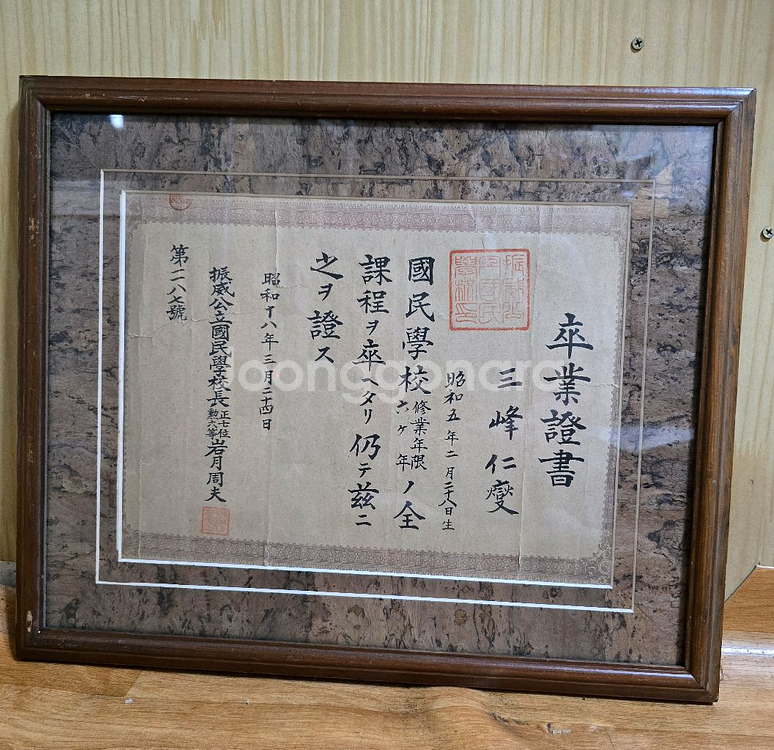 卒業證書
三峰仁燮
昭和五年二月二十八日生
國民學校修業年限六ケ年ノ全
課程ヲ卒ヘタリ仍テ茲ニ
之ヲ證ス
昭和十八年三月二十四日
振威公立國民學校長正七位勲六等岩月周夫
第一一八七號
joonggonara